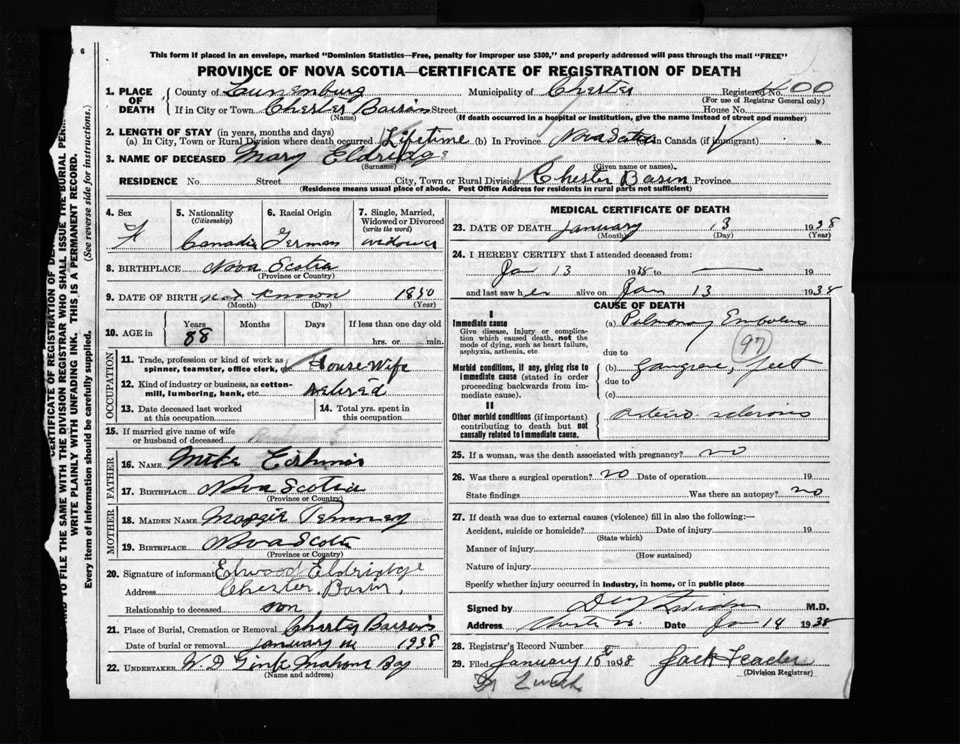 6
This form if placed in an envelope, marked "Dominion Statistics—Free, penalty for improper use $300," and properly addressed will pass through the mail "FREE"
PROVINCE OF NOVA SCOTIA—CERTIFICATE OF REGISTRATION OF DEATH
1. PLACE OF DEATH County of Lunenburg Municipality of Chester Registered No. 600
(For use of Registrar General only)
If in City or Town Chester Basin Street House No.
(Name) (If death occurred in a hospital or institution, give the name instead of street and number)
2. LENGTH OF STAY (in years, months and days)
(a) In City, Town or Rural Division where death occurred Lifetime (b) In Province Nova Scotia in Canada (if immigrant)
3. NAME OF DECEASED Mary Eldridge
(Surname) (Given name or names)
RESIDENCE No. Street City, Town or Rural Division Chester Basin Province
(Residence means usual place of abode. Post Office Address for residents in rural parts not sufficient)
4. Sex F
5. Nationality (Citizenship) Canadian
6. Racial Origin German
7. Single, Married, Widowed or Divorced (write the word) widower
8. BIRTHPLACE Nova Scotia
(Province or Country)
9. DATE OF BIRTH not known 1850
(Month) (Day) (Year)
10. AGE in Years Months Days If less than one day old
88 hrs. or min.
OCCUPATION
11. Trade, profession or kind of work as spinner, teamster, office clerk, etc. House Wife
12. Kind of industry or business, as cotton-mill, lumbering, bank, etc. retired
13. Date deceased last worked at this occupation
14. Total yrs. spent in this occupation
15. If married give name of wife or husband of deceased
FATHER
16. NAME
17. BIRTHPLACE Nova Scotia
(Province or Country)
MOTHER
18. MAIDEN NAME Maggie
19. BIRTHPLACE Nova Scotia
(Province or Country)
20. Signature of informant Elwood Eldridge
Address Chester Basin,
Relationship to deceased son
21. Place of Burial, Cremation or Removal Chester Basin
Date of burial or removal January 1938
22. UNDERTAKER W. D. Mahone Bay
(Name and address)
MEDICAL CERTIFICATE OF DEATH
23. DATE OF DEATH January 13 1938
(Month) (Day) (Year)
24. I HEREBY CERTIFY that I attended deceased from:
Jan 13 1938 to — 19
and last saw her alive on Jan 13 1938
CAUSE OF DEATH
I
Immediate cause
Give disease, injury or complication which caused death, not the mode of dying, such as heart failure, asphyxia, asthenia, etc.
(a) Pulmonary Embolus
97
due to
Morbid conditions, if any, giving rise to immediate cause (stated in order proceeding backwards from immediate cause).
(b) Gangrene, feet
due to
(c)
II
Other morbid conditions (if important) contributing to death but not causally related to immediate cause.
Arterio sclerosis
25. If a woman, was the death associated with pregnancy? no
26. Was there a surgical operation? no Date of operation 19
State findings Was there an autopsy? no
27. If death was due to external causes (violence) fill in also the following:—
Accident, suicide or homicide? Date of injury 19
(State which)
Manner of injury
(How sustained)
Nature of injury
Specify whether injury occurred in industry, in home, or in public place
Signed by M.D.
Address Chester Date Jan 14 1938
28. Registrar's Record Number
29. Filed January 15 1938 Jack
(Division Registrar)
WRITE PLAINLY WITH UNFADING INK. THIS IS A PERMANENT RECORD.
Every item of information should be carefully supplied.
(See reverse side for instructions.)